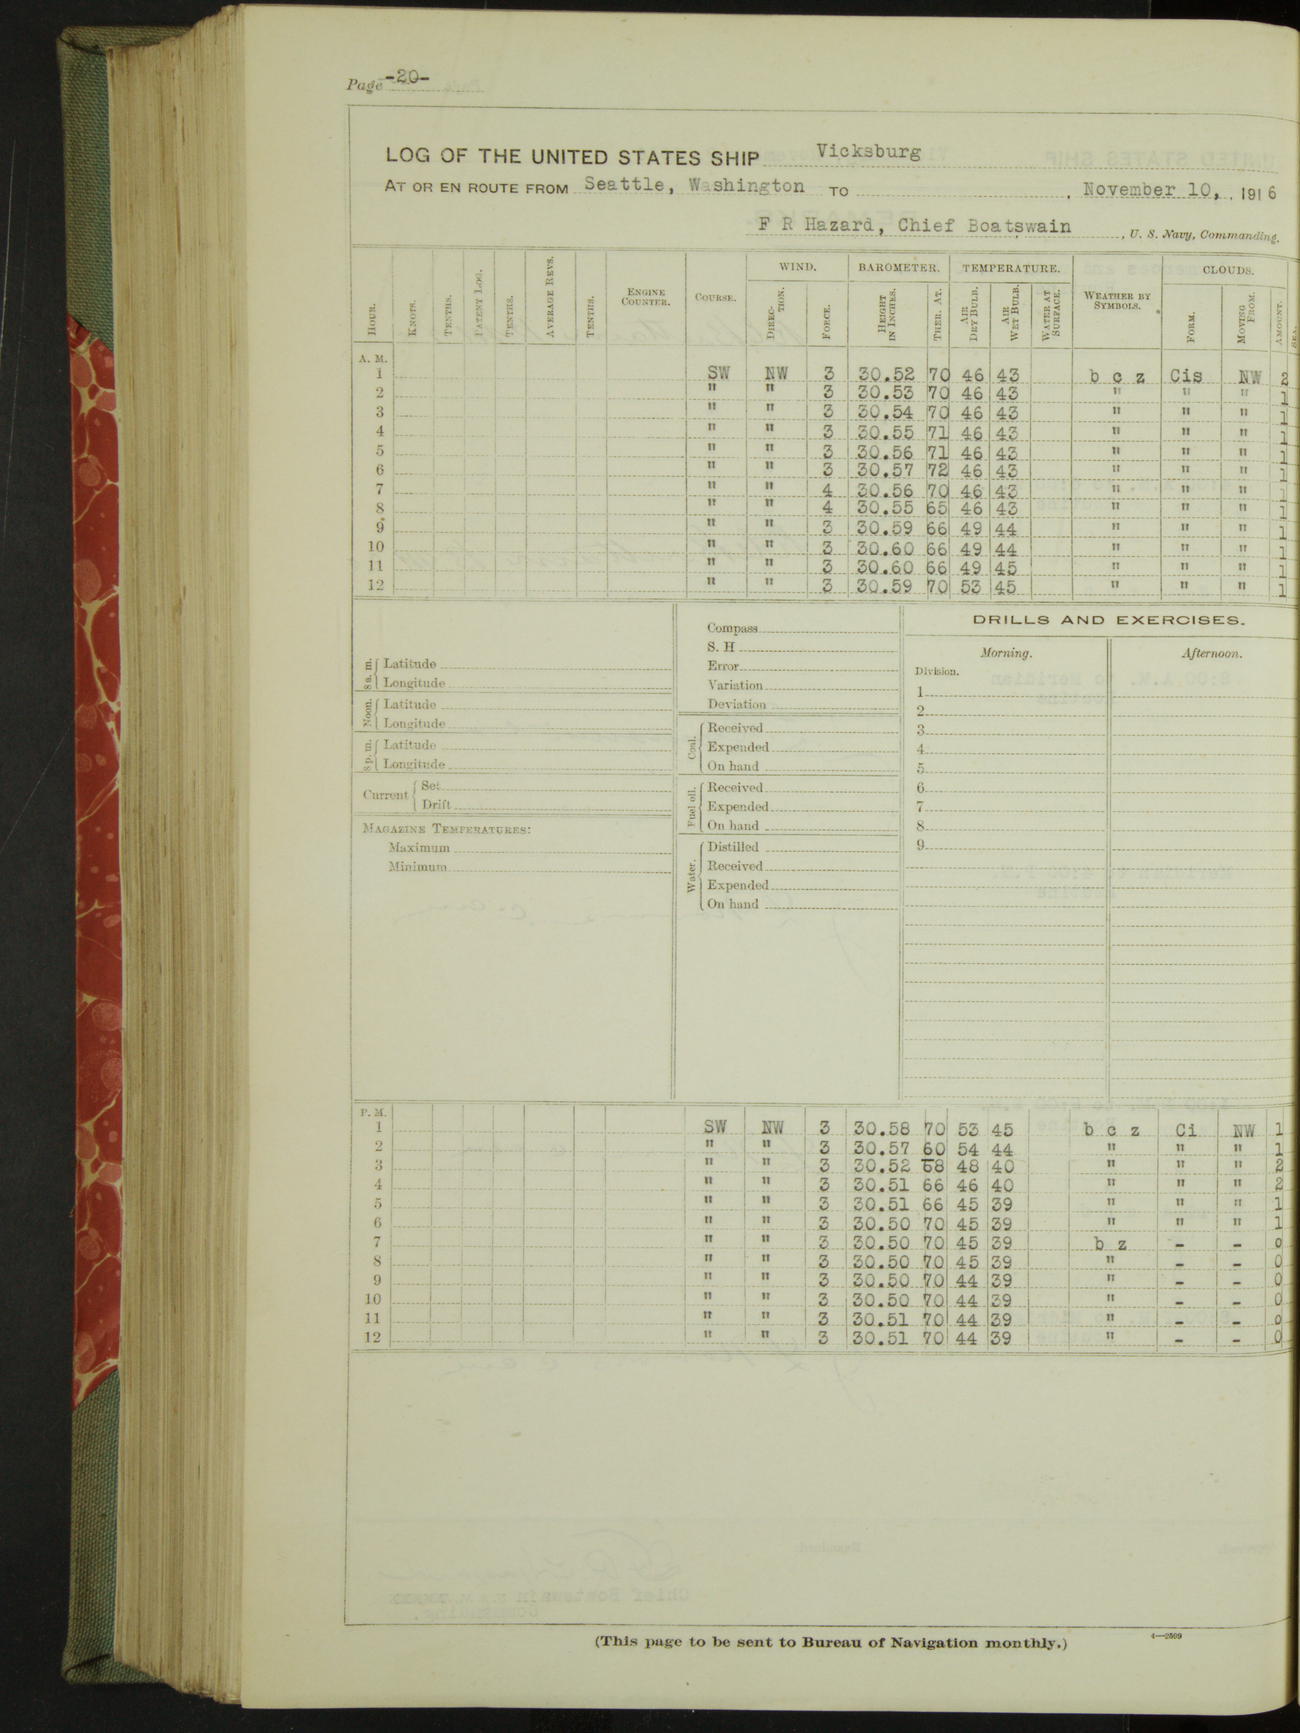 Page -20-
LOG OF THE UNITED STATES SHIP Vicksburg
AT OR EN ROUTE FROM Seattle, Washington TO , November 10, , 1916
F R Hazard, Chief Boatswain , U. S. Navy, Commanding.
WIND. BAROMETER. TEMPERATURE. CLOUDS.
HOUR. KNOTS. TENTHS. PATENT LOG. TENTHS. AVERAGE REVS. TENTHS. ENGINE COUNTER. COURSE. DIRECTION. FORCE. HEIGHT IN INCHES. THER. AT. AIR DRY BULB. AIR WET BULB. WATER AT SURFACE. WEATHER BY SYMBOLS. FORM. MOVING FROM. AMOUNT. SEA.
A. M.
1 SW NW 3 30.52 70 46 43 b c z Cis NW 2
2 " " 3 30.53 70 46 43 " " " 1
3 " " 3 30.54 70 46 43 " " " 1
4 " " 3 30.55 71 46 43 " " " 1
5 " " 3 30.56 71 46 43 " " " 1
6 " " 3 30.57 72 46 43 " " " 1
7 " " 4 30.56 70 46 43 " " " 1
8 " " 4 30.55 65 46 43 " " " 1
9 " " 3 30.59 66 49 44 " " " 1
10 " " 3 30.60 66 49 44 " " " 1
11 " " 3 30.60 66 49 45 " " " 1
12 " " 3 30.59 70 53 45 " " " 1
8 a. m. Latitude
Longitude
Noon. Latitude
Longitude
8 p. m. Latitude
Longitude
Current Set
Drift
MAGAZINE TEMPERATURES:
Maximum
Minimum
Compass
S. H
Error
Variation
Deviation
Coal. Received
Expended
On hand
Fuel oil. Received
Expended
On hand
Water. Distilled
Received
Expended
On hand
DRILLS AND EXERCISES.
Morning. Afternoon.
Division.
1
2
3
4
5
6
7
8
9
P. M.
1 SW NW 3 30.58 70 53 45 b c z Ci NW 1
2 " " 3 30.57 60 54 44 " " " 1
3 " " 3 30.52 68 48 40 " " " 2
4 " " 3 30.51 66 46 40 " " " 2
5 " " 3 30.51 66 45 39 " " " 1
6 " " 3 30.50 70 45 39 " " " 1
7 " " 3 30.50 70 45 39 b z - - 0
8 " " 3 30.50 70 45 39 " - - 0
9 " " 3 30.50 70 44 39 " - - 0
10 " " 3 30.50 70 44 39 " - - 0
11 " " 3 30.51 70 44 39 " - - 0
12 " " 3 30.51 70 44 39 " - - 0
(This page to be sent to Bureau of Navigation monthly.) 4—2509